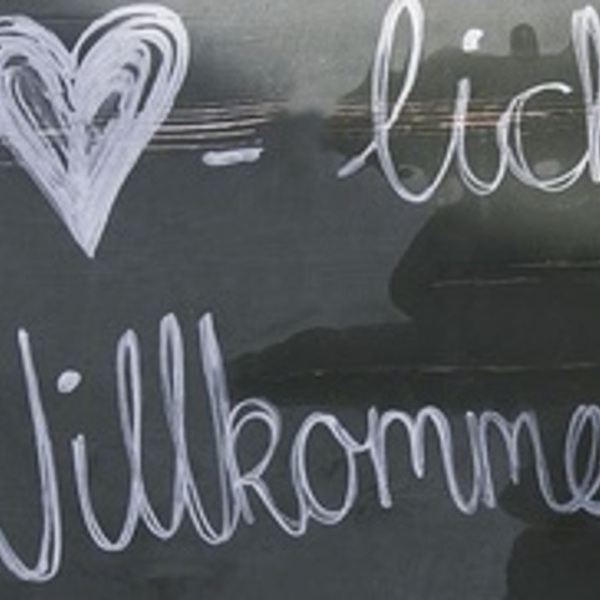 ♥-lich
Willkomme